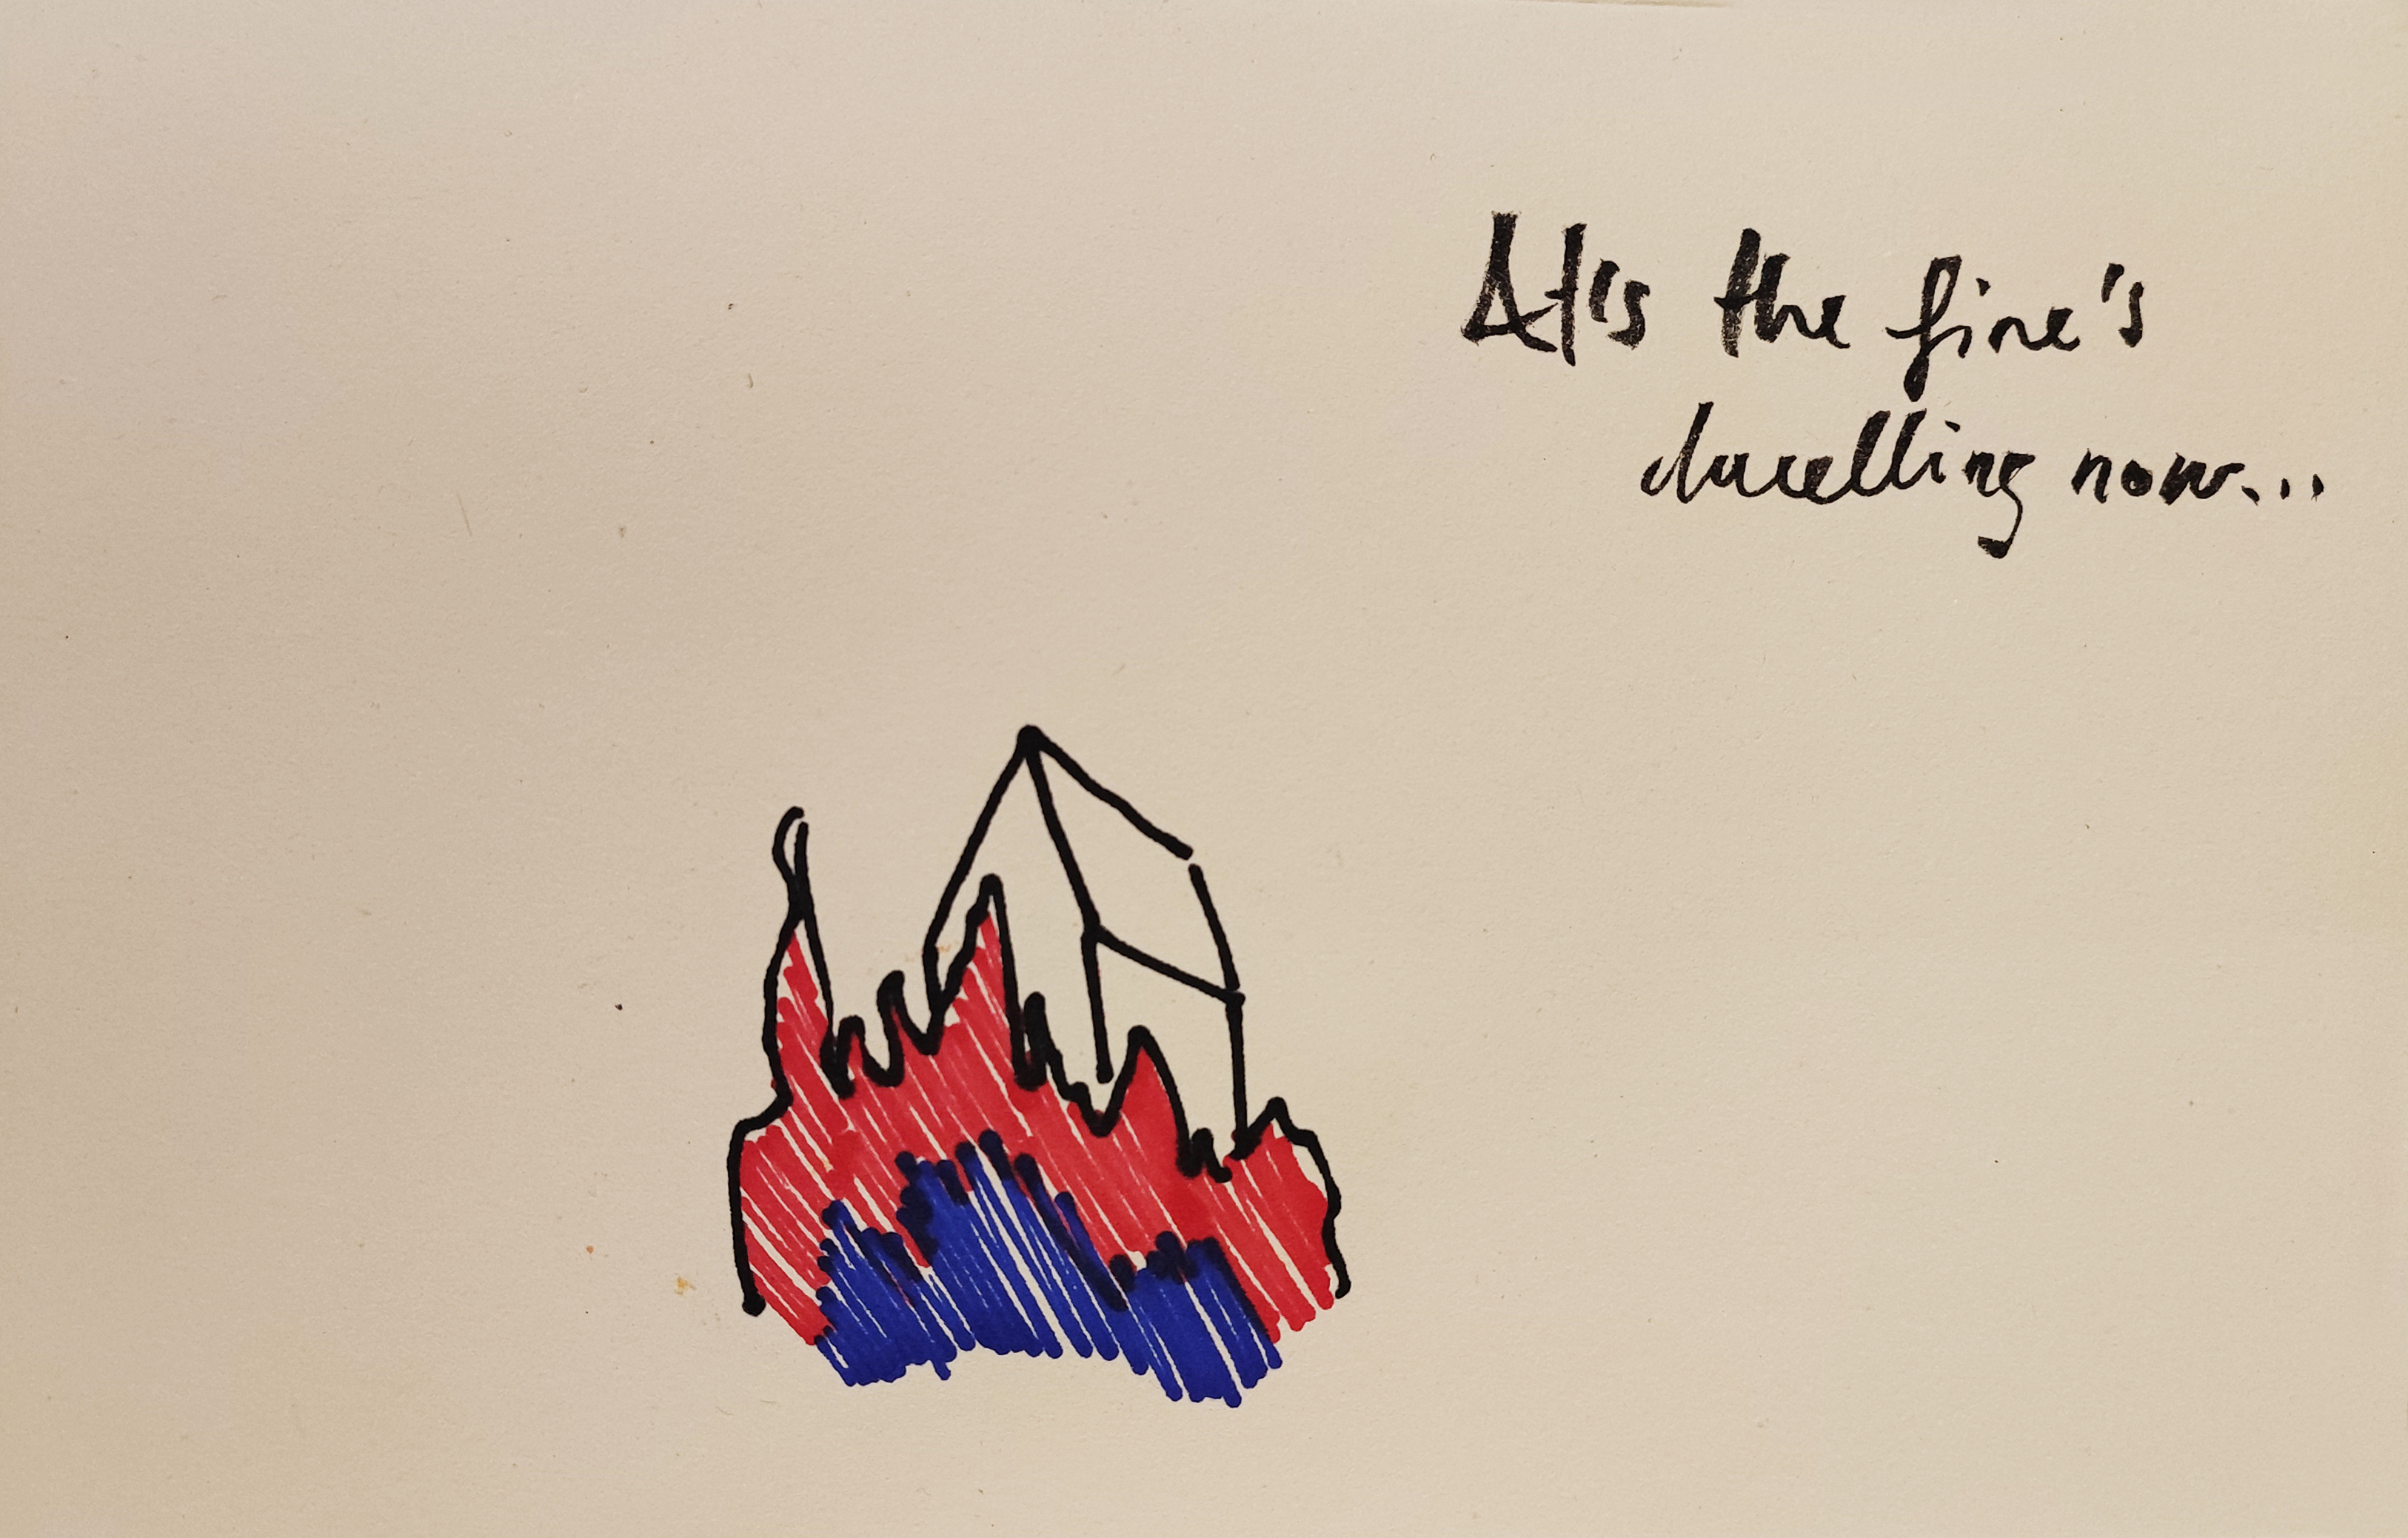 It's the fire's
dwelling now...